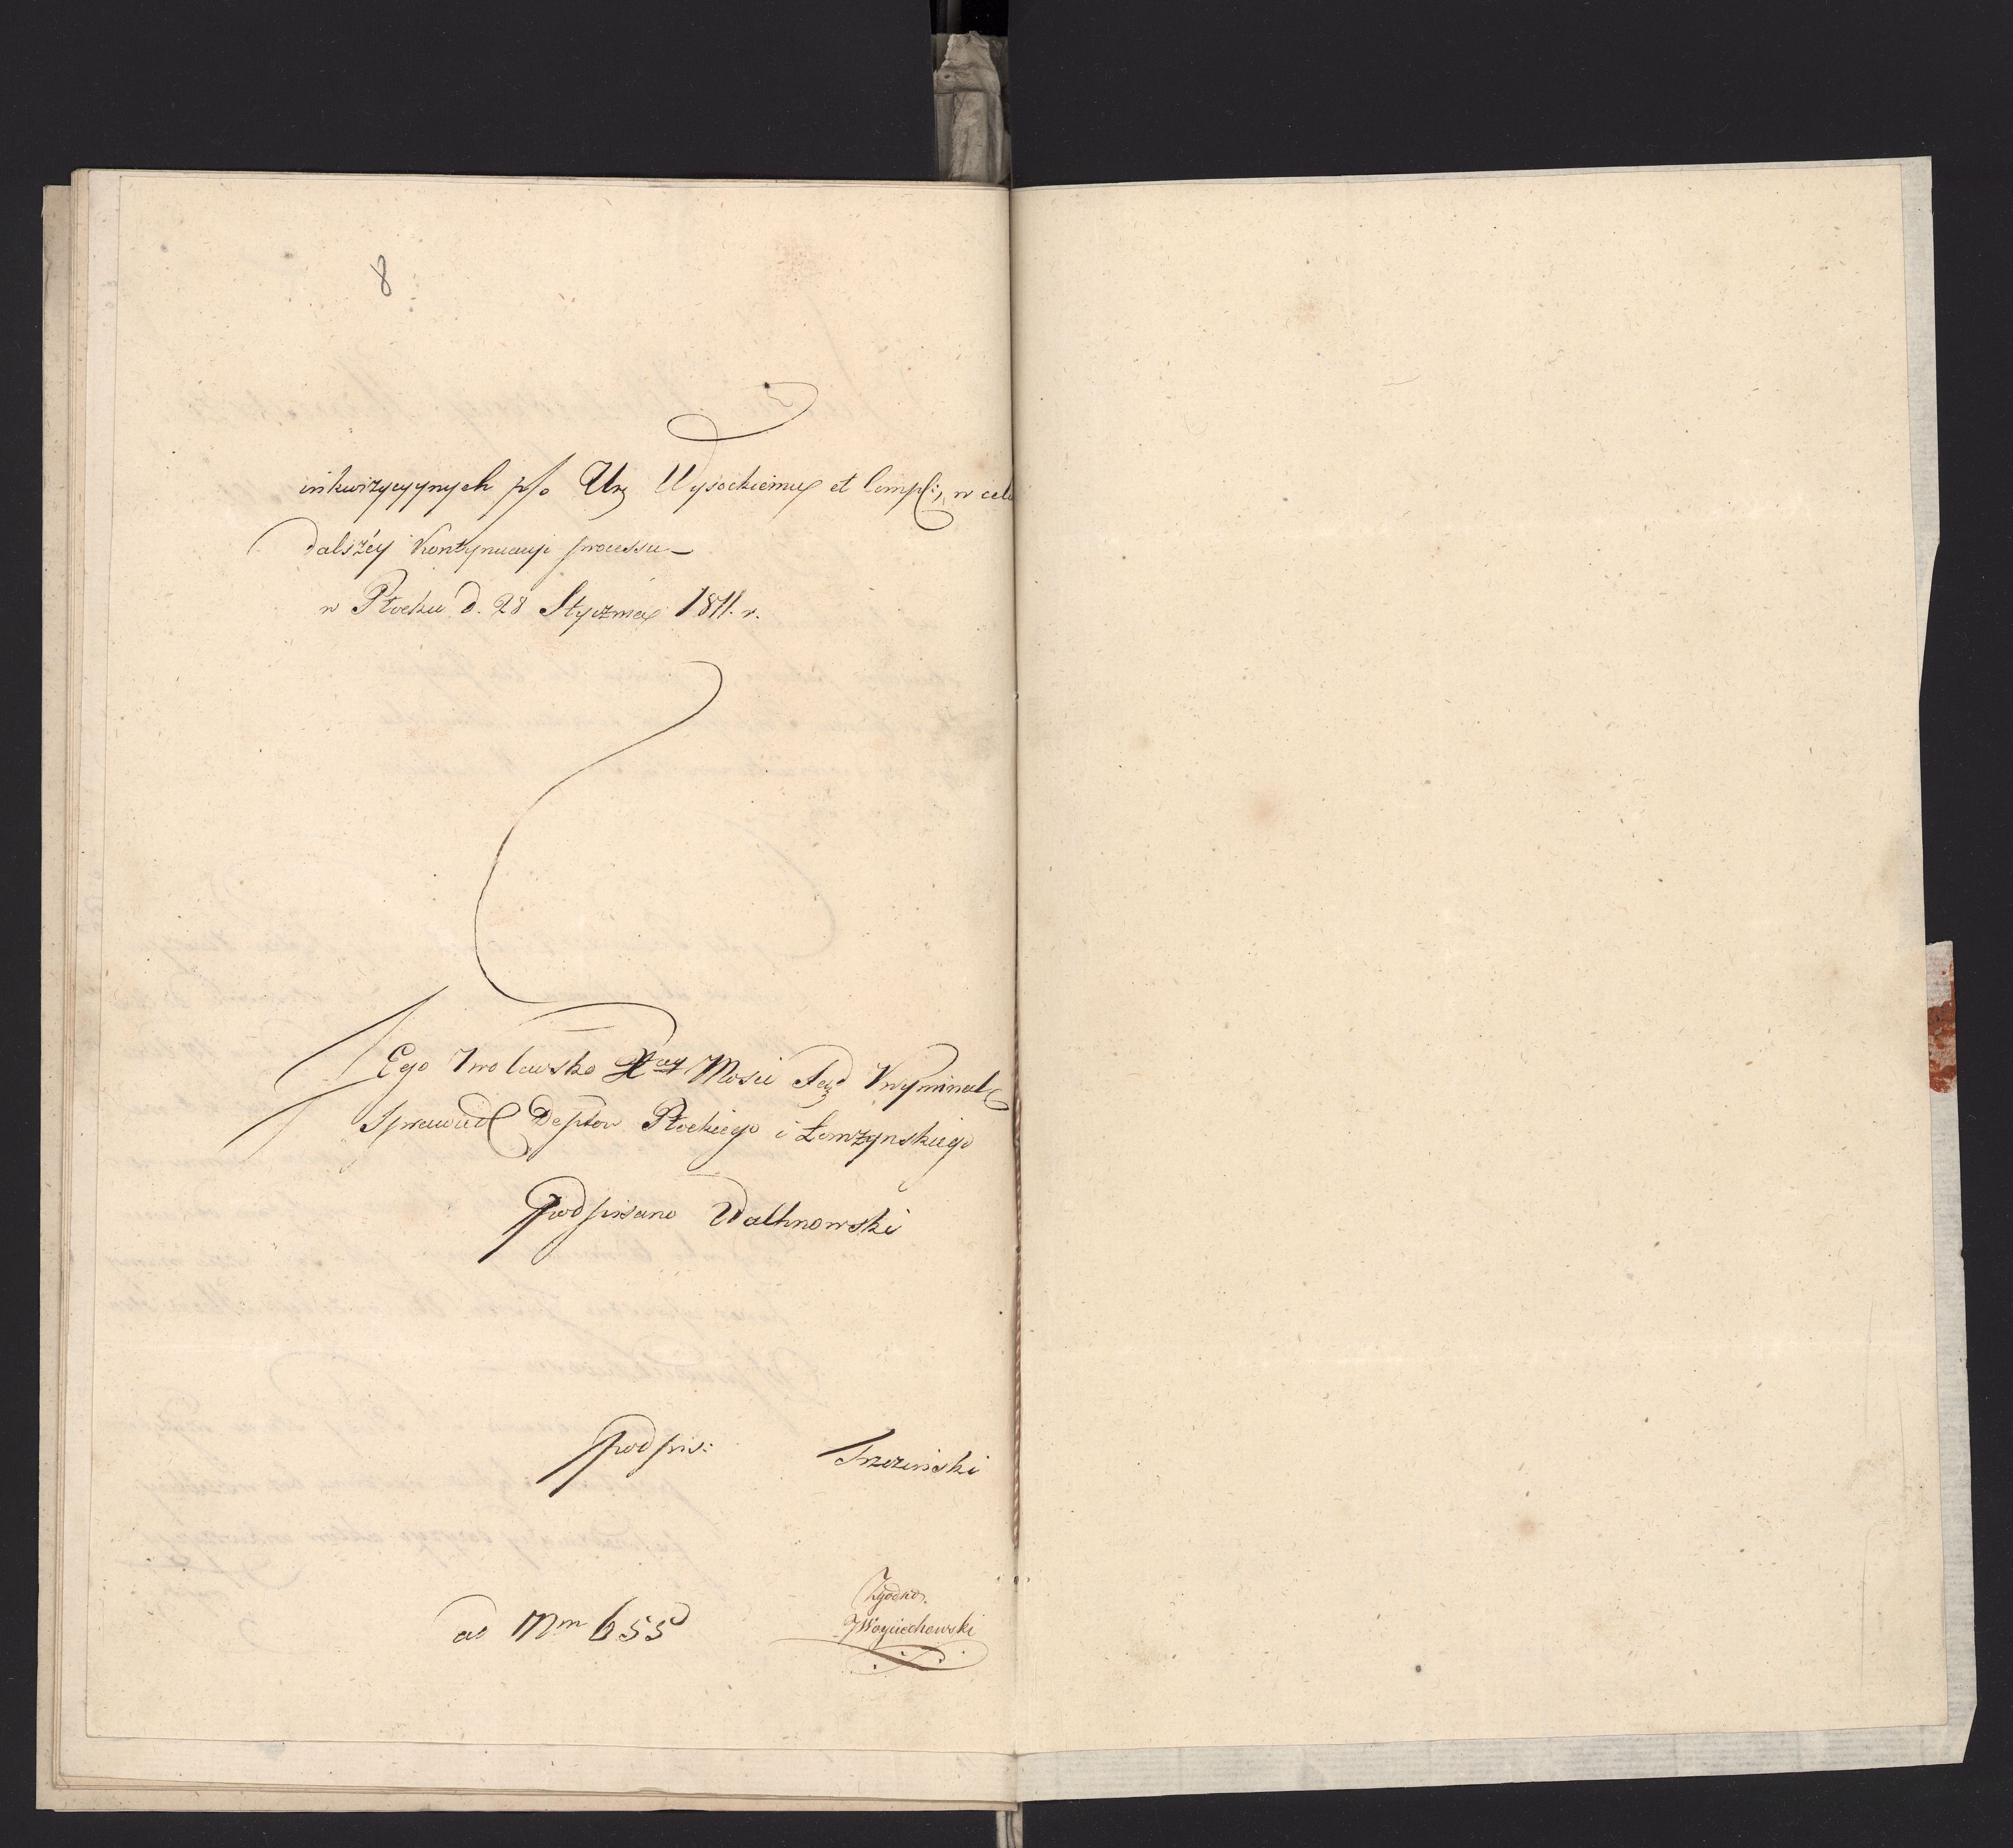 8
inkwizycyynych p/o Urz Wysockiemu et Compl:, w celu
dalszéy kontynuacyi processu—
w Płocku d. 28 Stycznia 1811. r.
JEgo Krolewsko Xcey Mosci Sąd Kryminal
Sprawied Deptow Płockiego i Łomzynskiego
Podpisano Walknowski
podpis: Trzcinski
ad Nm 655
Zgodno.
JWoyciechowski